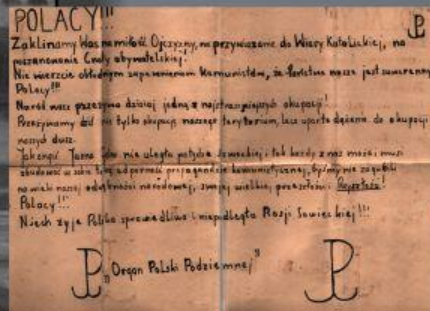 POLACY!!!
Zaklinamy Was na miłość Ojczyzny, na przywiązanie do Wiary Katolickiej, na
poszanowanie Cnoty obywatelskiej!
Nie wierzcie obłudnym zapewnieniom Komunistów, że Państwo nasze jest suwerenne
Polacy!!!
Naród nasz przeżywa dzisiaj jedną z najstraszniejszych okupacji!
Przeżywamy dziś nie tylko okupację naszego terytorium, lecz uparte dążenie do okupacji
naszych dusz.
Jak ongiś Jasna Góra nie uległa potędze szwedzkiej i tak każdy z nas może i musi
zbudować w sobie taką odporność propagandzie komunistycznej, byśmy nie zagubili
na wieki naszej odrębności narodowej, swojej wielkiej przeszłości i
Polacy!!!
Niech żyje Polska sprawiedliwa i niepodległa Rosji Sowieckiej!!!
"Organ Polski Podziemnej"